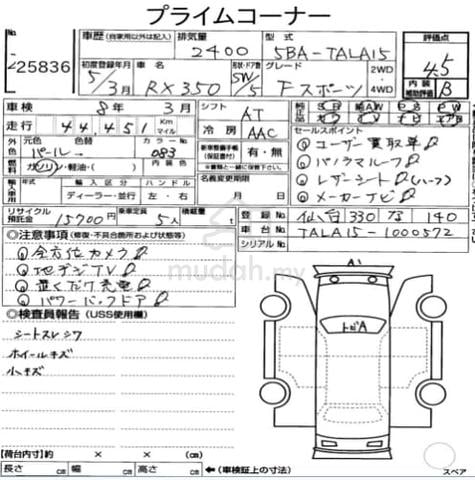 プライムコーナー
25836
車歴 (自家用以外は記入) 排気量 型式 評価点
2400 5BA-TALA15 4.5
初度登録年月 車名 形状・ドア数 グレード 2WD・4WD 内装補助評価
5/3月 RX350 5W/5 Fスポーツ B
車検 8年 3月 シフト AT
走行 44,451 Km マイル 冷房 AAC
セールスポイント
外色 元色 色替 カラーNo.
パール 083
燃料 ガソリン・軽油・( )
新車整備手帳(保証書付) 有・無
ユーザー買取車
パノラマルーフ
レザーシート(ハーフ)
メーカーナビ
輸入車用 年式 輸入区分 ハンドル 名義変更期限
ディーラー・並行 左・右 月 日
リサイクル預託金 15700円 乗車定員 5人 積載量 t
登録No. 仙台 330 な 140
車台No. TALA15-1000572
シリアルNo.
◎注意事項 (修復・不具合箇所および状態等)
全方位カメラ
地デジTV
置くだけ充電
パワーバックドア
mudah.my
◎検査員報告 (USS使用欄)
シートスレ シワ
ホイールキズ
小キズ
A1
トビA
【荷台内寸】約 × × (cm)
長さ cm 幅 cm 高さ cm ←(車検証上の寸法)
スペア